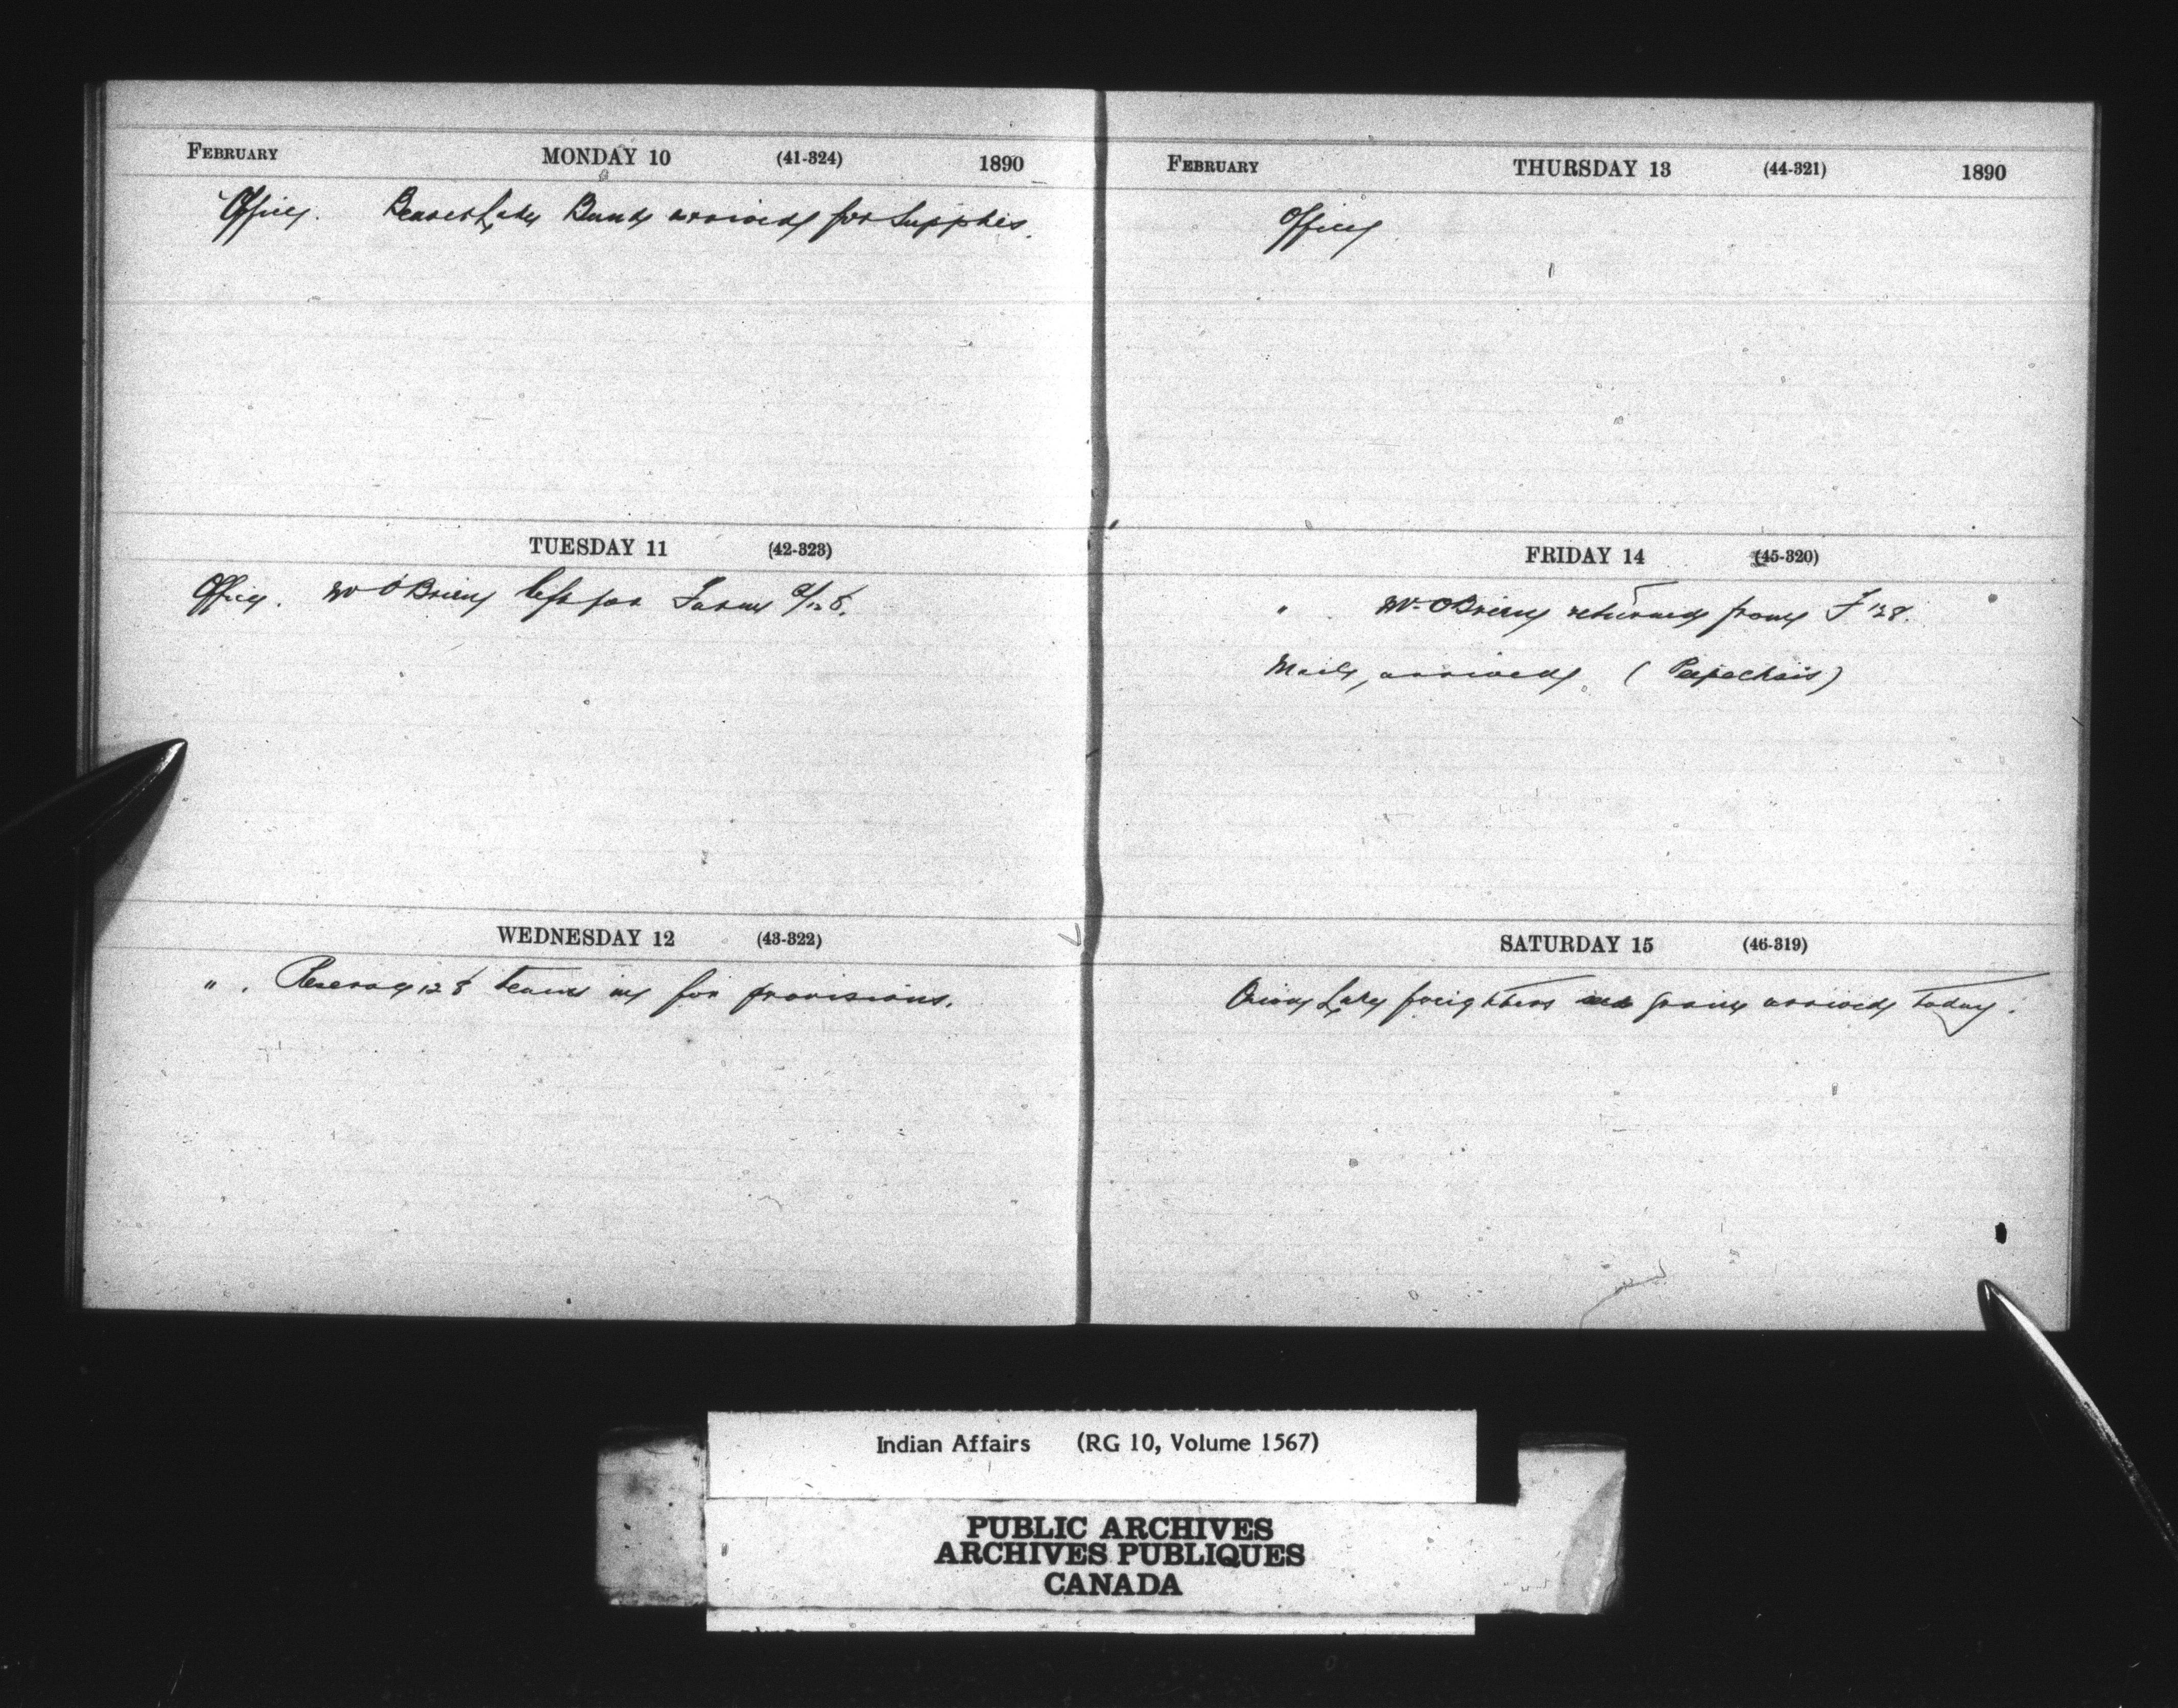 FEBRUARY MONDAY 10 (41-324) 1890
Office. Beaver Lake Band arrived for Supplies.
TUESDAY 11 (42-323)
Office. Mr O'Brien left for Farm 128.
WEDNESDAY 12 (43-322)
" . Reserve 128 teams in for provisions.
FEBRUARY THURSDAY 13 (44-321) 1890
Office
FRIDAY 14 (45-320)
" Mr. O'Brien returned from F 128.
Mail arrived. (Peepeechais)
SATURDAY 15 (46-319)
Lake freighters grain arrived today.
Indian Affairs (RG 10, Volume 1567)
PUBLIC ARCHIVES
ARCHIVES PUBLIQUES
CANADA